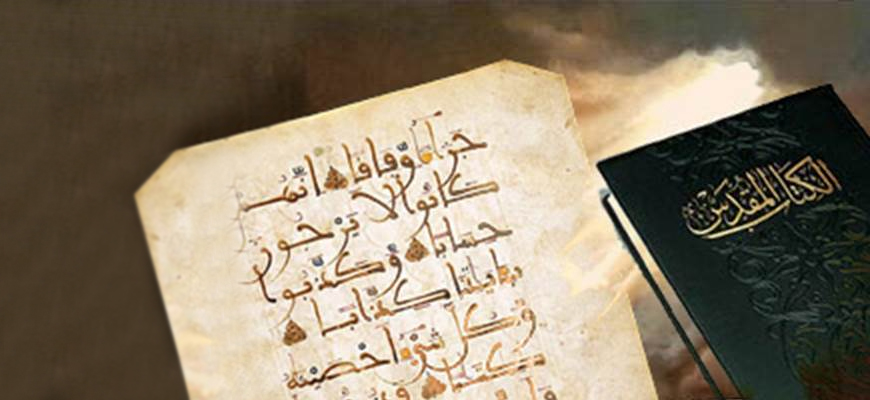 جزا وفاقا انهم
كانوا لا يرجون
حسابا وكذبوا
بايتنا كذابا
وكل شى احصينه
كتبا
الكتاب المقدس